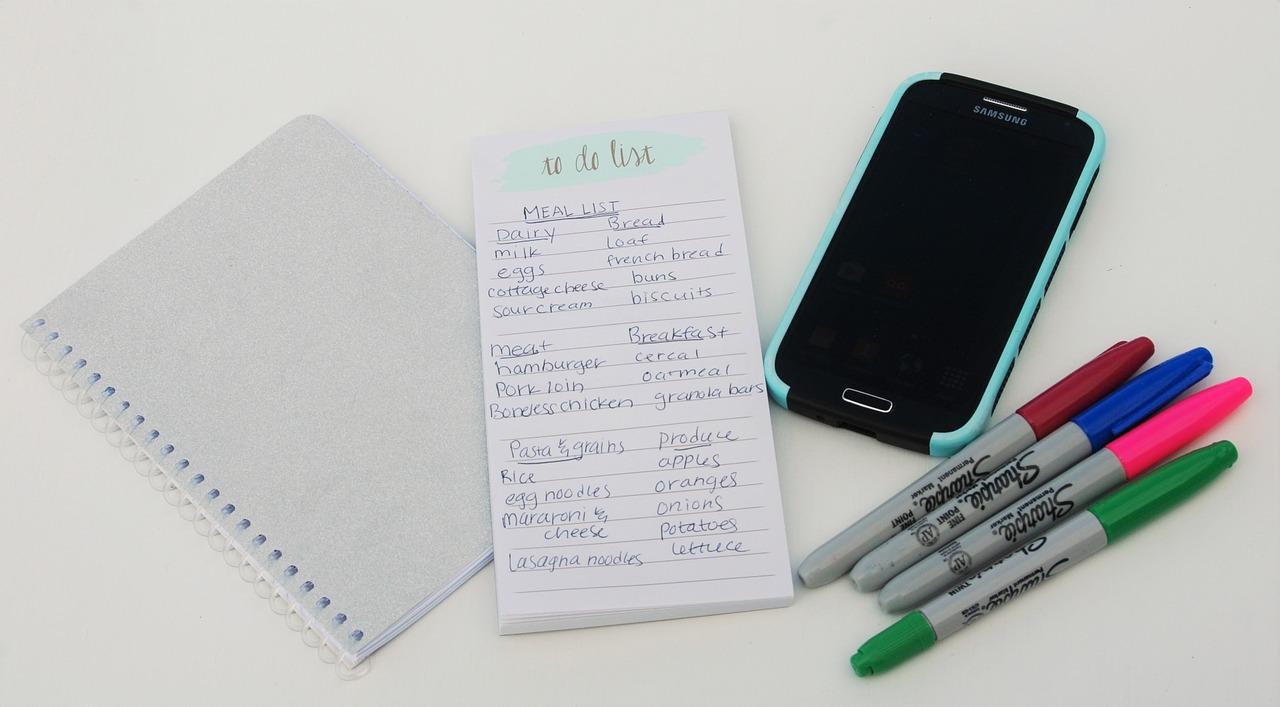 to do list
MEAL LIST
Dairy
milk
eggs
cottage cheese
sour cream
Bread
loaf
french bread
buns
biscuits
meat
hamburger
Pork loin
Boneless chicken
Breakfast
cereal
oatmeal
granola bars
Pasta & grains
Rice
egg noodles
mararoni &
cheese
lasagna noodles
produce
apples
oranges
onions
potatoes
lettuce
SAMSUNG
Sharpie
Permanent Marker
FINE POINT
Sharpie
FINE POINT
AP
Sharpie
Permanent Marker
AP
Sharpie
Permanent Marker
TWIN